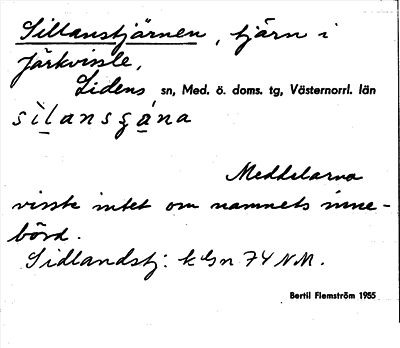 Sillanstjärnen, tjärn i
Järkvissle,
Lidens sn, Med. ö. doms. tg, Västernorrl. län
sìlansgána
Meddelarna
visste intet om namnets inne-
börd.
Sidlandstj: kGn 74 NM.
Bertil Flemström 1955